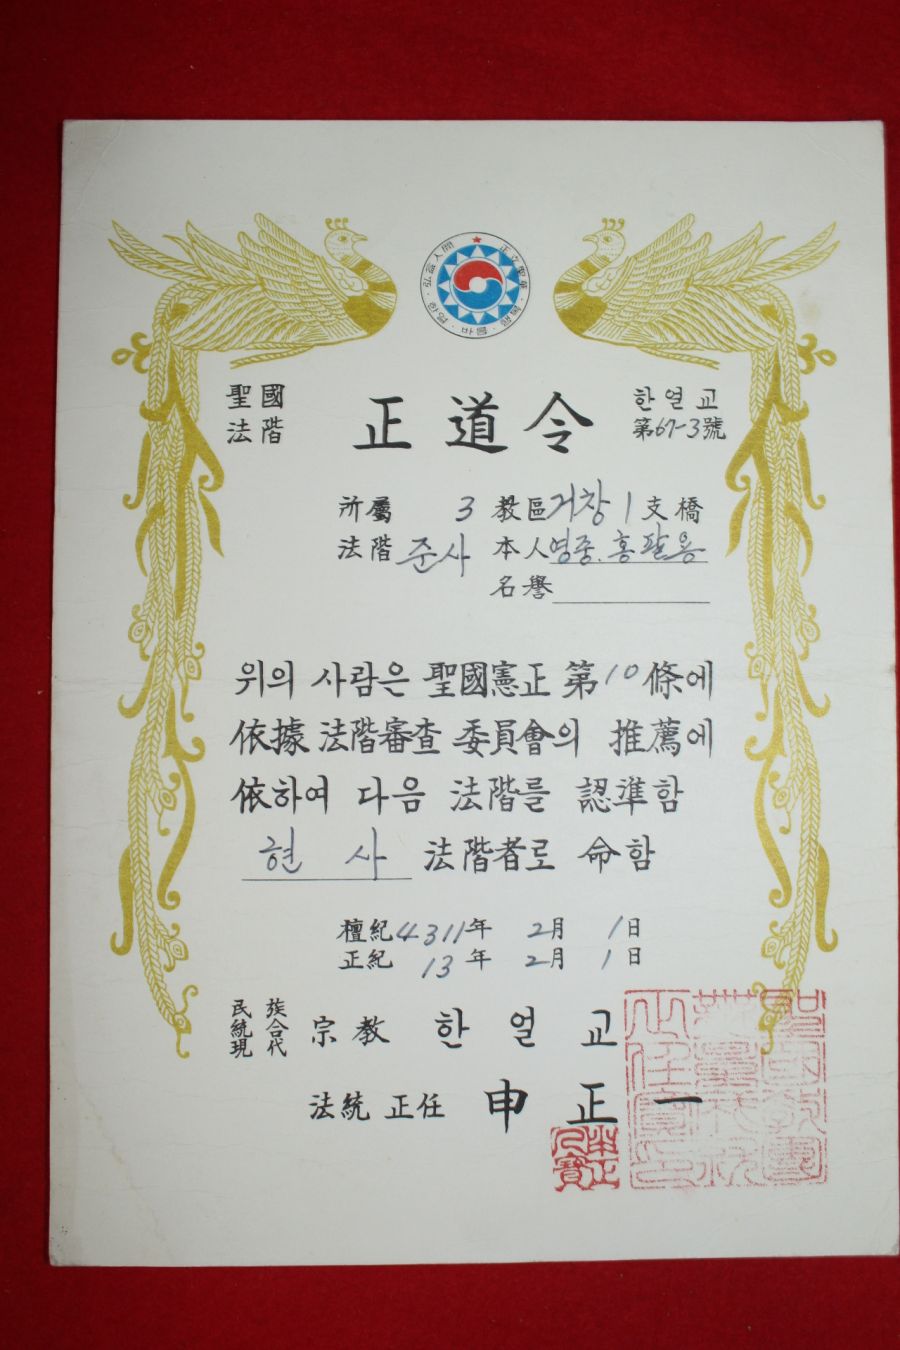 聖國 正道令 한얼교
法階 第67-3號
所屬 3 教區 거창 1 支橋
法階 준사 本人 영중. 홍팔용
名譽
위의 사람은 聖國憲正 第10條에
依據 法階審査 委員會의 推薦에
依하여 다음 法階를 認準함
현 사 法階者로 命함
檀紀 4311年 2月 1日
正紀 13年 2月 1日
民族
統合 宗教 한얼교
現代
法統 正任 申正一